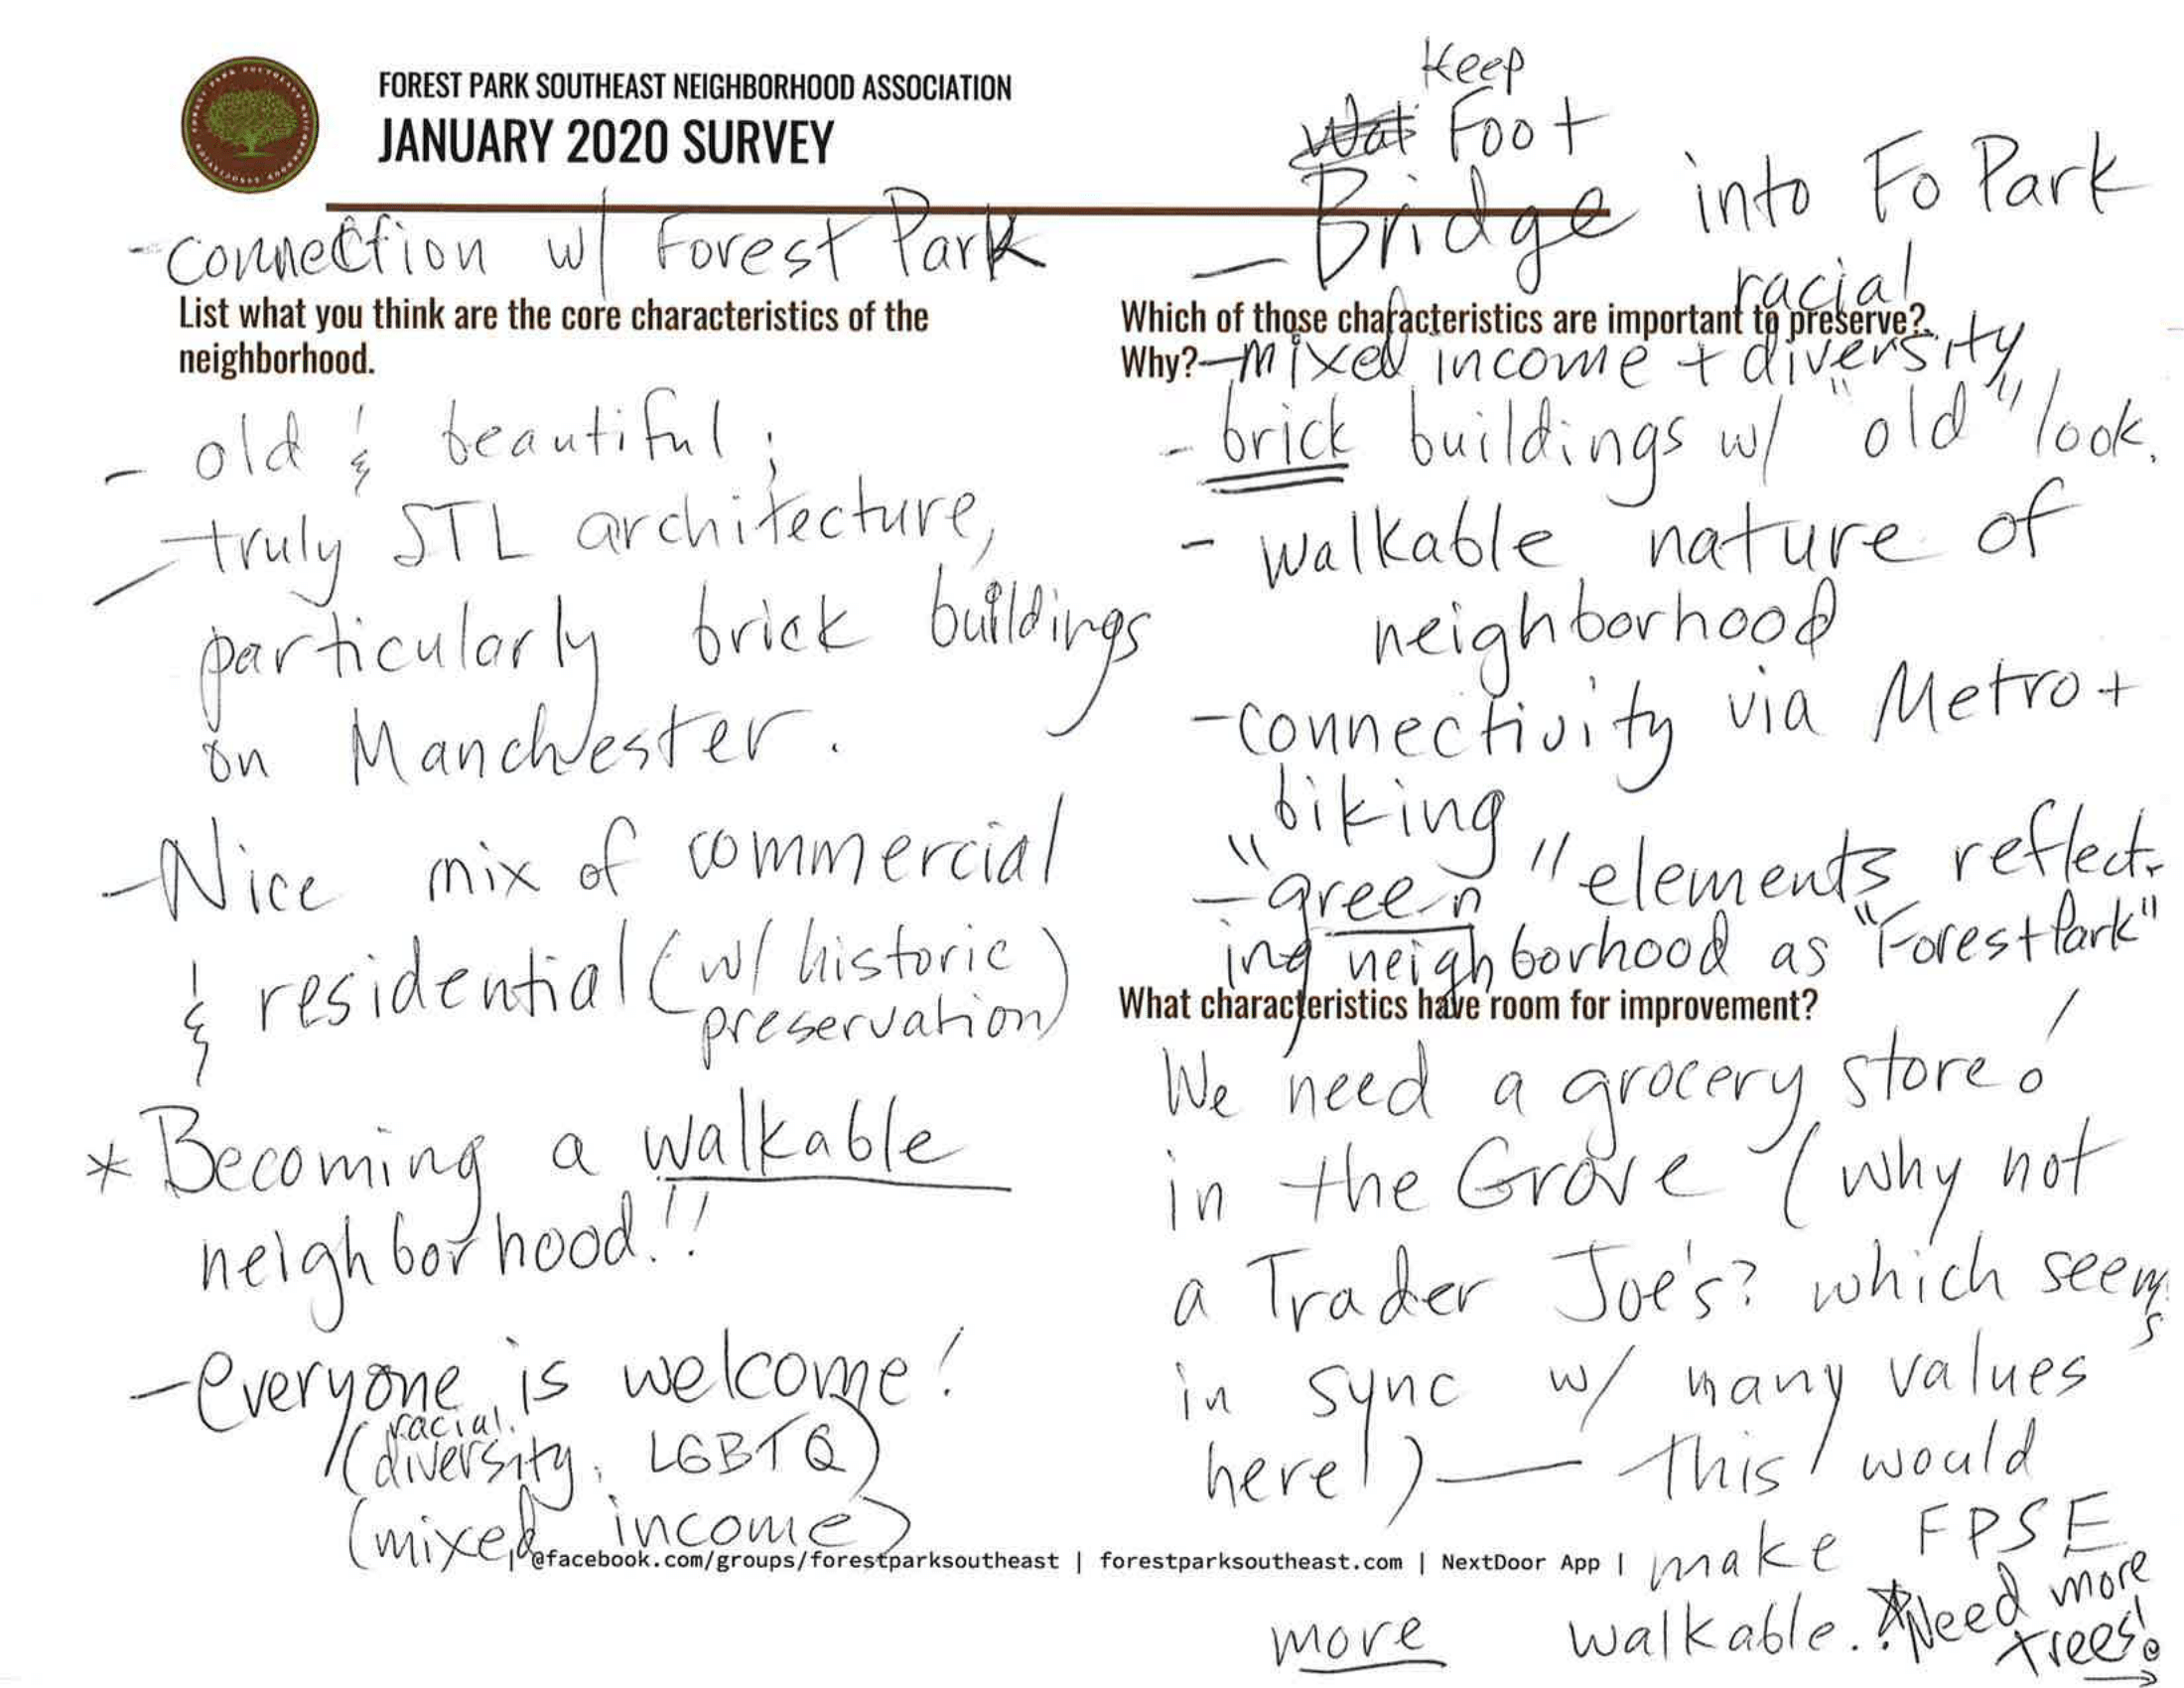 FOREST PARK SOUTHEAST NEIGHBORHOOD ASSOCIATION
JANUARY 2020 SURVEY
- connection w/ Forest Park
List what you think are the core characteristics of the
neighborhood.
- old & beautiful;
- truly STL architecture,
particularly brick buildings
on Manchester.
- Nice mix of commercial
& residential (w/ historic
preservation)
* Becoming a walkable
neighborhood!!
- everyone is welcome!
racial
(diversity, LGBTQ)
(mixed income)
Keep
Foot
- Bridge into Fo Park
Which of those characteristics are important to preserve?
racial
Why? - mixed income + diversity
- brick buildings w/ "old" look.
- walkable nature of
neighborhood
- connectivity via Metro +
biking
- "green" elements reflect-
ing neighborhood as "Forest Park"
What characteristics have room for improvement?
We need a grocery store!
in the Grove (why not
a Trader Joe's? which seems
in sync w/ many values
here!) — this would
make FPSE
more walkable. * Need more
trees!
@facebook.com/groups/forestparksoutheast | forestparksoutheast.com | NextDoor App |